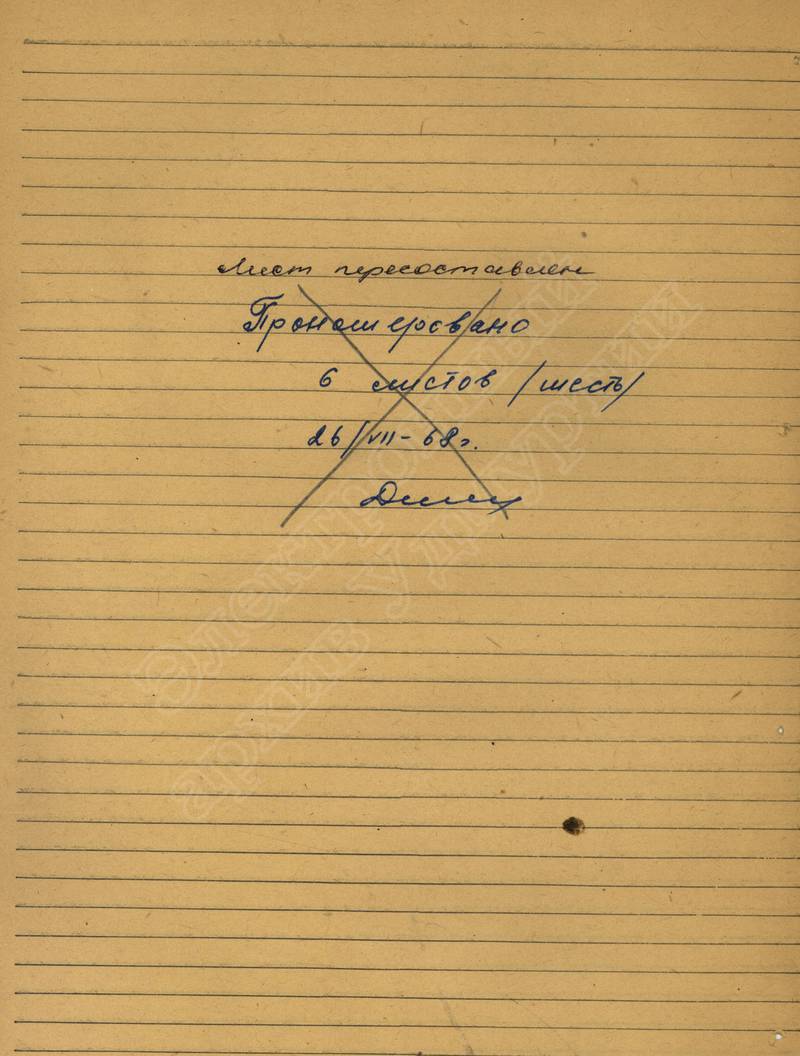 Лист пересоставлен
Пронумеровано
6 листов /шесть/
26/VII-68г.
Электронный
архив Удмуртии